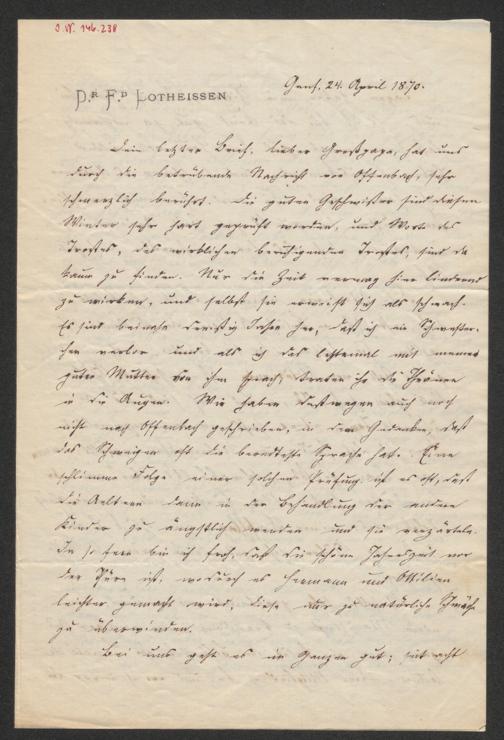 I.N. 146.238
Dr. Fd. LOTHEISSEN
Genf. 24. April 1870.
Dein letzter Brief, lieber Großpapa, hat uns
durch die betrübende Nachricht von Offenbach, sehr
schmerzlich berührt. Die guten Geschwister sind diesen
Winter sehr hart geprüft worden, und Worte des
Trostes, des wirklichen beruhigenden Trostes, sind da
kaum zu finden. Nur die Zeit vermag hier lindernd
zu wirken, und selbst sie erweist sich als schwach.
Es sind beinahe dreißig Jahre her, daß ich ein Schwester-
chen verlor und als ich das letztemal mit meiner
guten Mutter von ihm sprach, traten ihr die Thränen
in die Augen. Wir haben deßwegen auch noch
nicht nach Offenbach geschrieben, in dem Gedanken, daß
das Schweigen oft die beredteste Sprache hat. Eine
schlimme Folge einer solchen Prüfung ist es oft, daß
die Aeltern dann in der Behandlung der andern
Kinder zu ängstlich werden und sie verzärteln.
In so fern bin ich froh, daß die schöne Jahreszeit vor
der Thüre ist, wodurch es Hermann und Ottilien
leichter gemacht wird, diese nur zu natürliche Schwäche
zu überwinden.
Bei uns geht es im Ganzen gut; seit acht